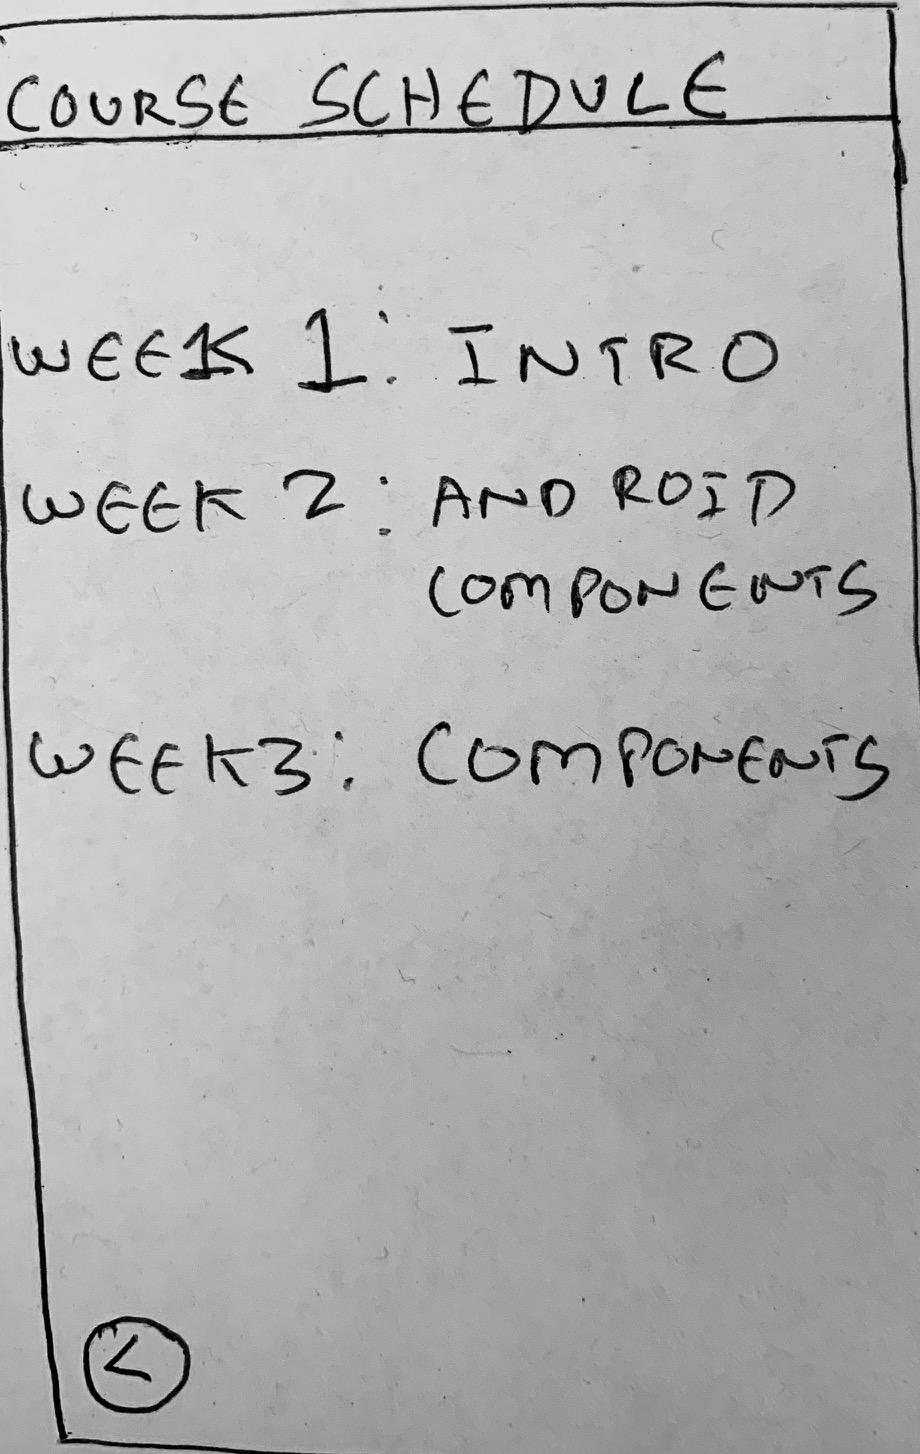 COURSE SCHEDULE
WEEK 1: INTRO
WEEK 2: ANDROID
COMPONENTS
WEEK3: COMPONENTS
<